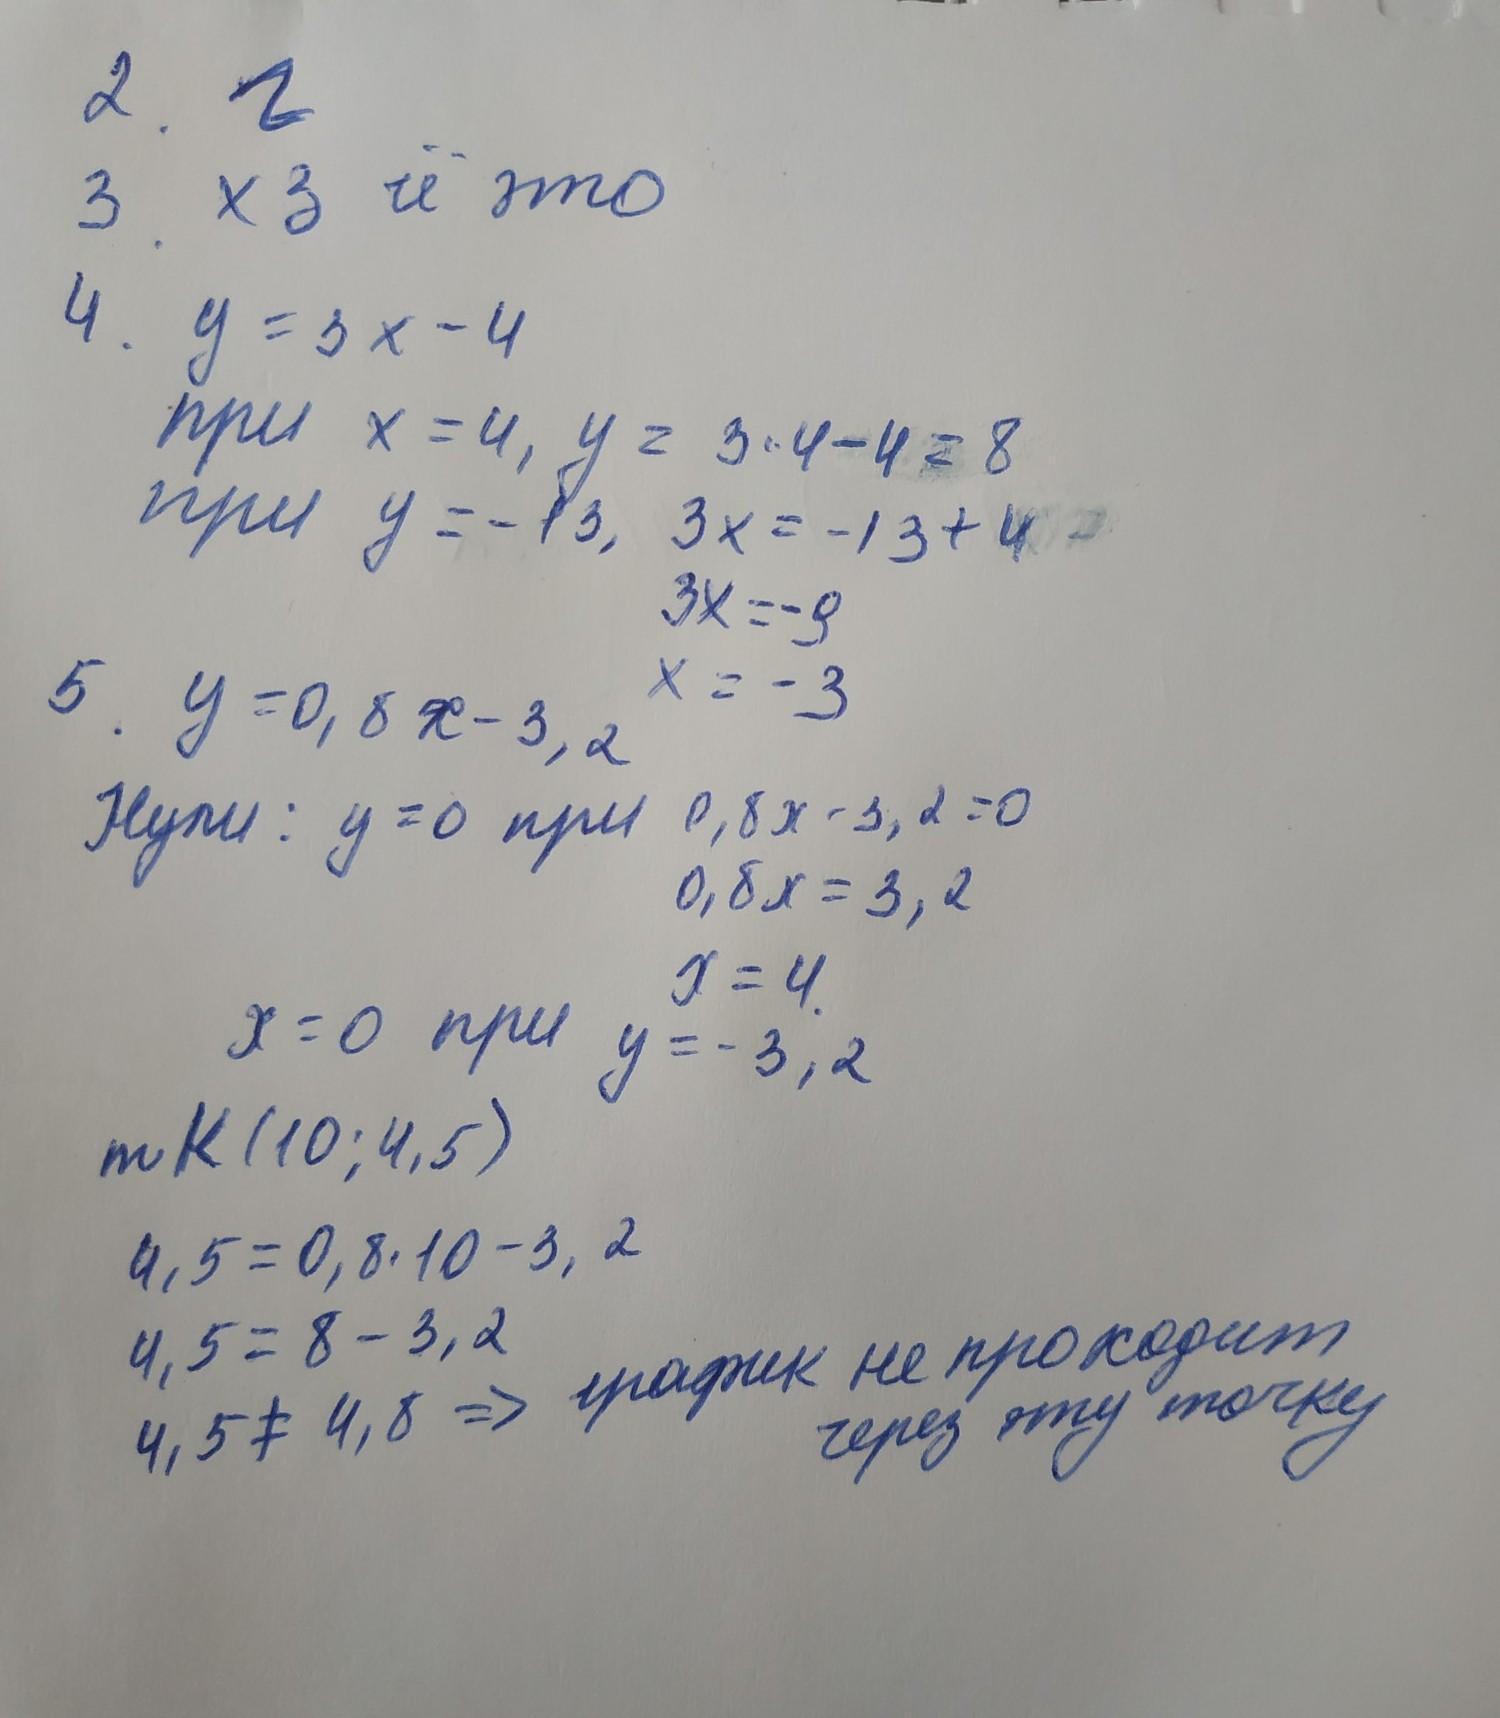 2. г
3. х3 чё это
4. y = 3x - 4
при x = 4, y = 3·4-4 = 8
при y = -13, 3x = -13+4
3x = -9
x = -3
5. y = 0,8x - 3,2
Нули: y = 0 при 0,8x - 3,2 = 0
0,8x = 3,2
x = 4.
x = 0 при y = -3,2
т К (10; 4,5)
4,5 = 0,8·10 - 3,2
4,5 = 8 - 3,2
4,5 ≠ 4,8 => график не проходит
через эту точку